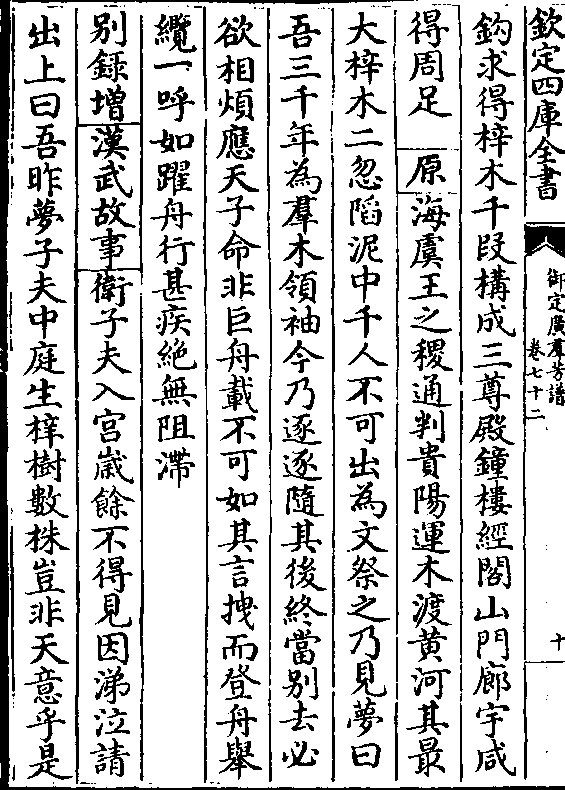 欽定四庫全書
御定廣羣芳譜
卷七十二
十
鈎求得梓木千段構成三尊殿鐘樓經閣山門廊宇咸
得周足 原 海虞王之稷通判貴陽運木渡黄河其最
大梓木二忽䧟泥中千人不可出為文祭之乃見夢曰
吾三千年為羣木領袖今乃逐逐隨其後終當别去必
欲相煩應天子命非巨舟載不可如其言拽而登舟舉
纜一呼如躍舟行甚疾絶無阻滯
别錄增 漢武故事 衛子夫入宫嵗餘不得見因涕泣請
出上曰吾昨夢子夫中庭生梓樹數株豈非天意乎是